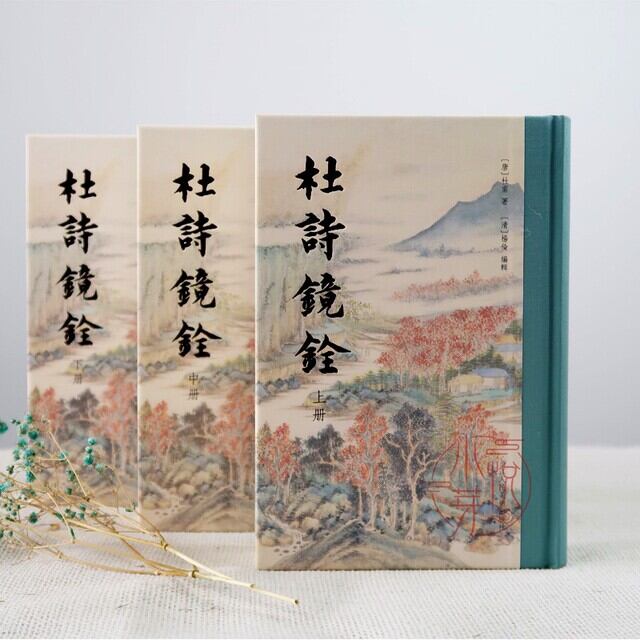 杜詩鏡銓
下册
杜詩鏡銓
中册
杜詩鏡銓
上册
[唐]杜甫 著 [清]楊倫 編輯